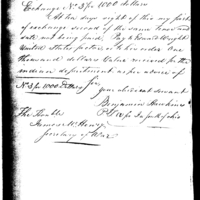 Exchange No 3 for 1000 dollars
At ten days sight of this my first
of exchange second of the same tenor and
date not being paid, Pay to Donald Wright
United States factor or his order One
thousand dollars Value received for the
indian department as per advice of
No 3 for 1000 Dollars
your obedient servant
Benjamin Hawkins
The Honble
James McHenry
Secretary of War